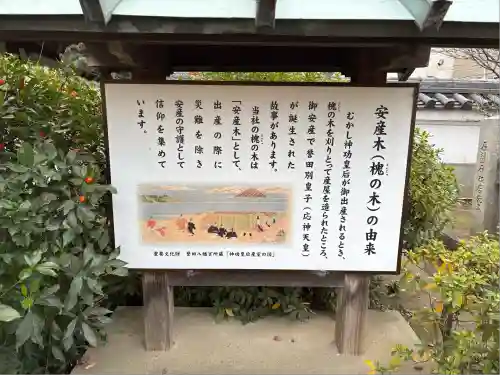 安産木(槐の木)の由来
えんじゅ
むかし神功皇后が御出産されるとき、
槐の木を刈りとって産屋を造られたところ、
御安産で誉田別皇子(応神天皇)
が誕生された
故事があります。
当社の槐の木は
「安産木」として、
出産の際に
災難を除き
安産の守護として
信仰を集めて
います。
重要文化財 誉田八幡宮所蔵「神功皇后宮の図」